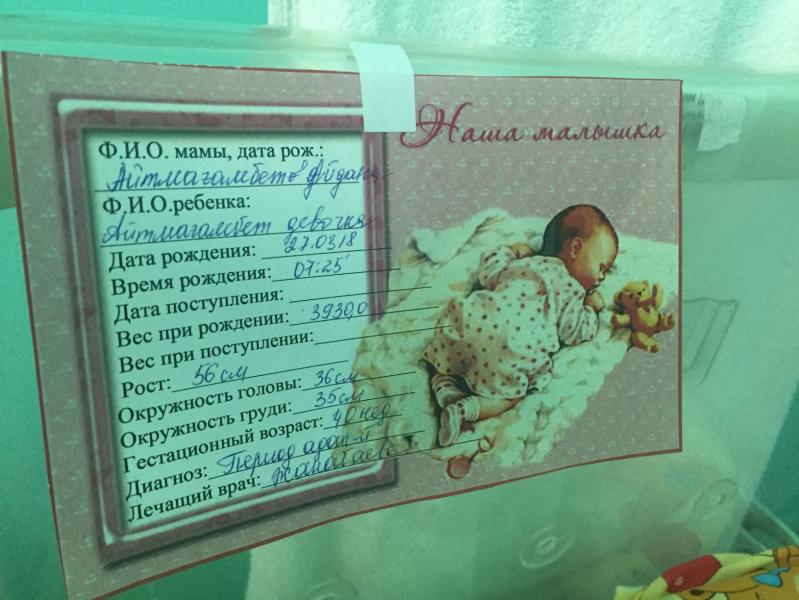 Наша малышка
Ф.И.О. мамы, дата рож.:
Айтмагамбетова Айдана
Ф.И.О.ребенка:
Айтмагамбет девочка
Дата рождения: 27.0318
Время рождения: 07:25
Дата поступления:
Вес при рождении: 3930,0
Вес при поступлении:
Рост: 56 см
Окружность головы: 36 см
Окружность груди: 35 см
Гестационный возраст: 40 нед
Диагноз: Период адап-и
Лечащий врач: